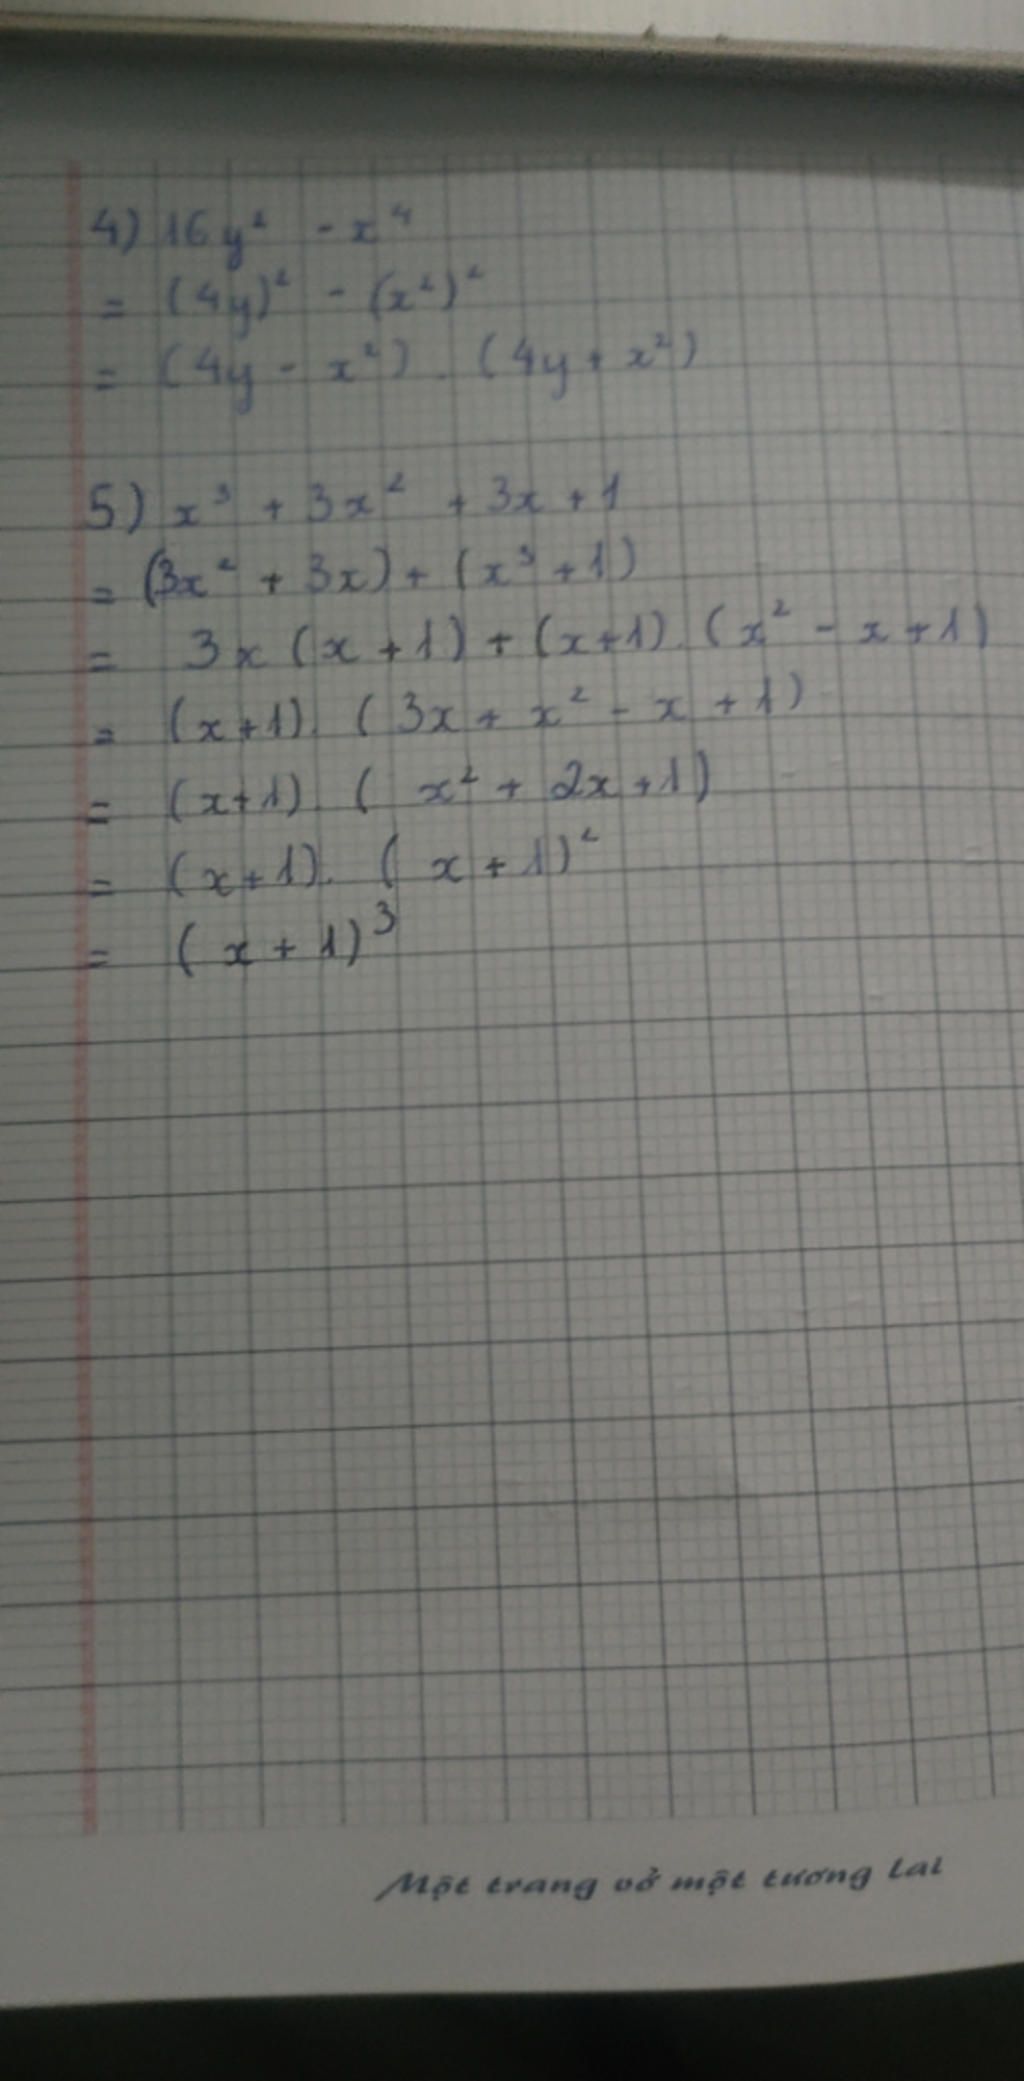 4) 16y² - x⁴
= (4y)² - (x²)²
= (4y - x²) . (4y + x²)
5) x³ + 3x² + 3x + 1
= (3x² + 3x) + (x³ + 1)
= 3x (x + 1) + (x+1) . (x² - x + 1)
= (x+1) . (3x + x² - x + 1)
= (x+1) . (x² + 2x + 1)
= (x+1) . (x + 1)²
= (x + 1)³
Một trang vở một tương lai